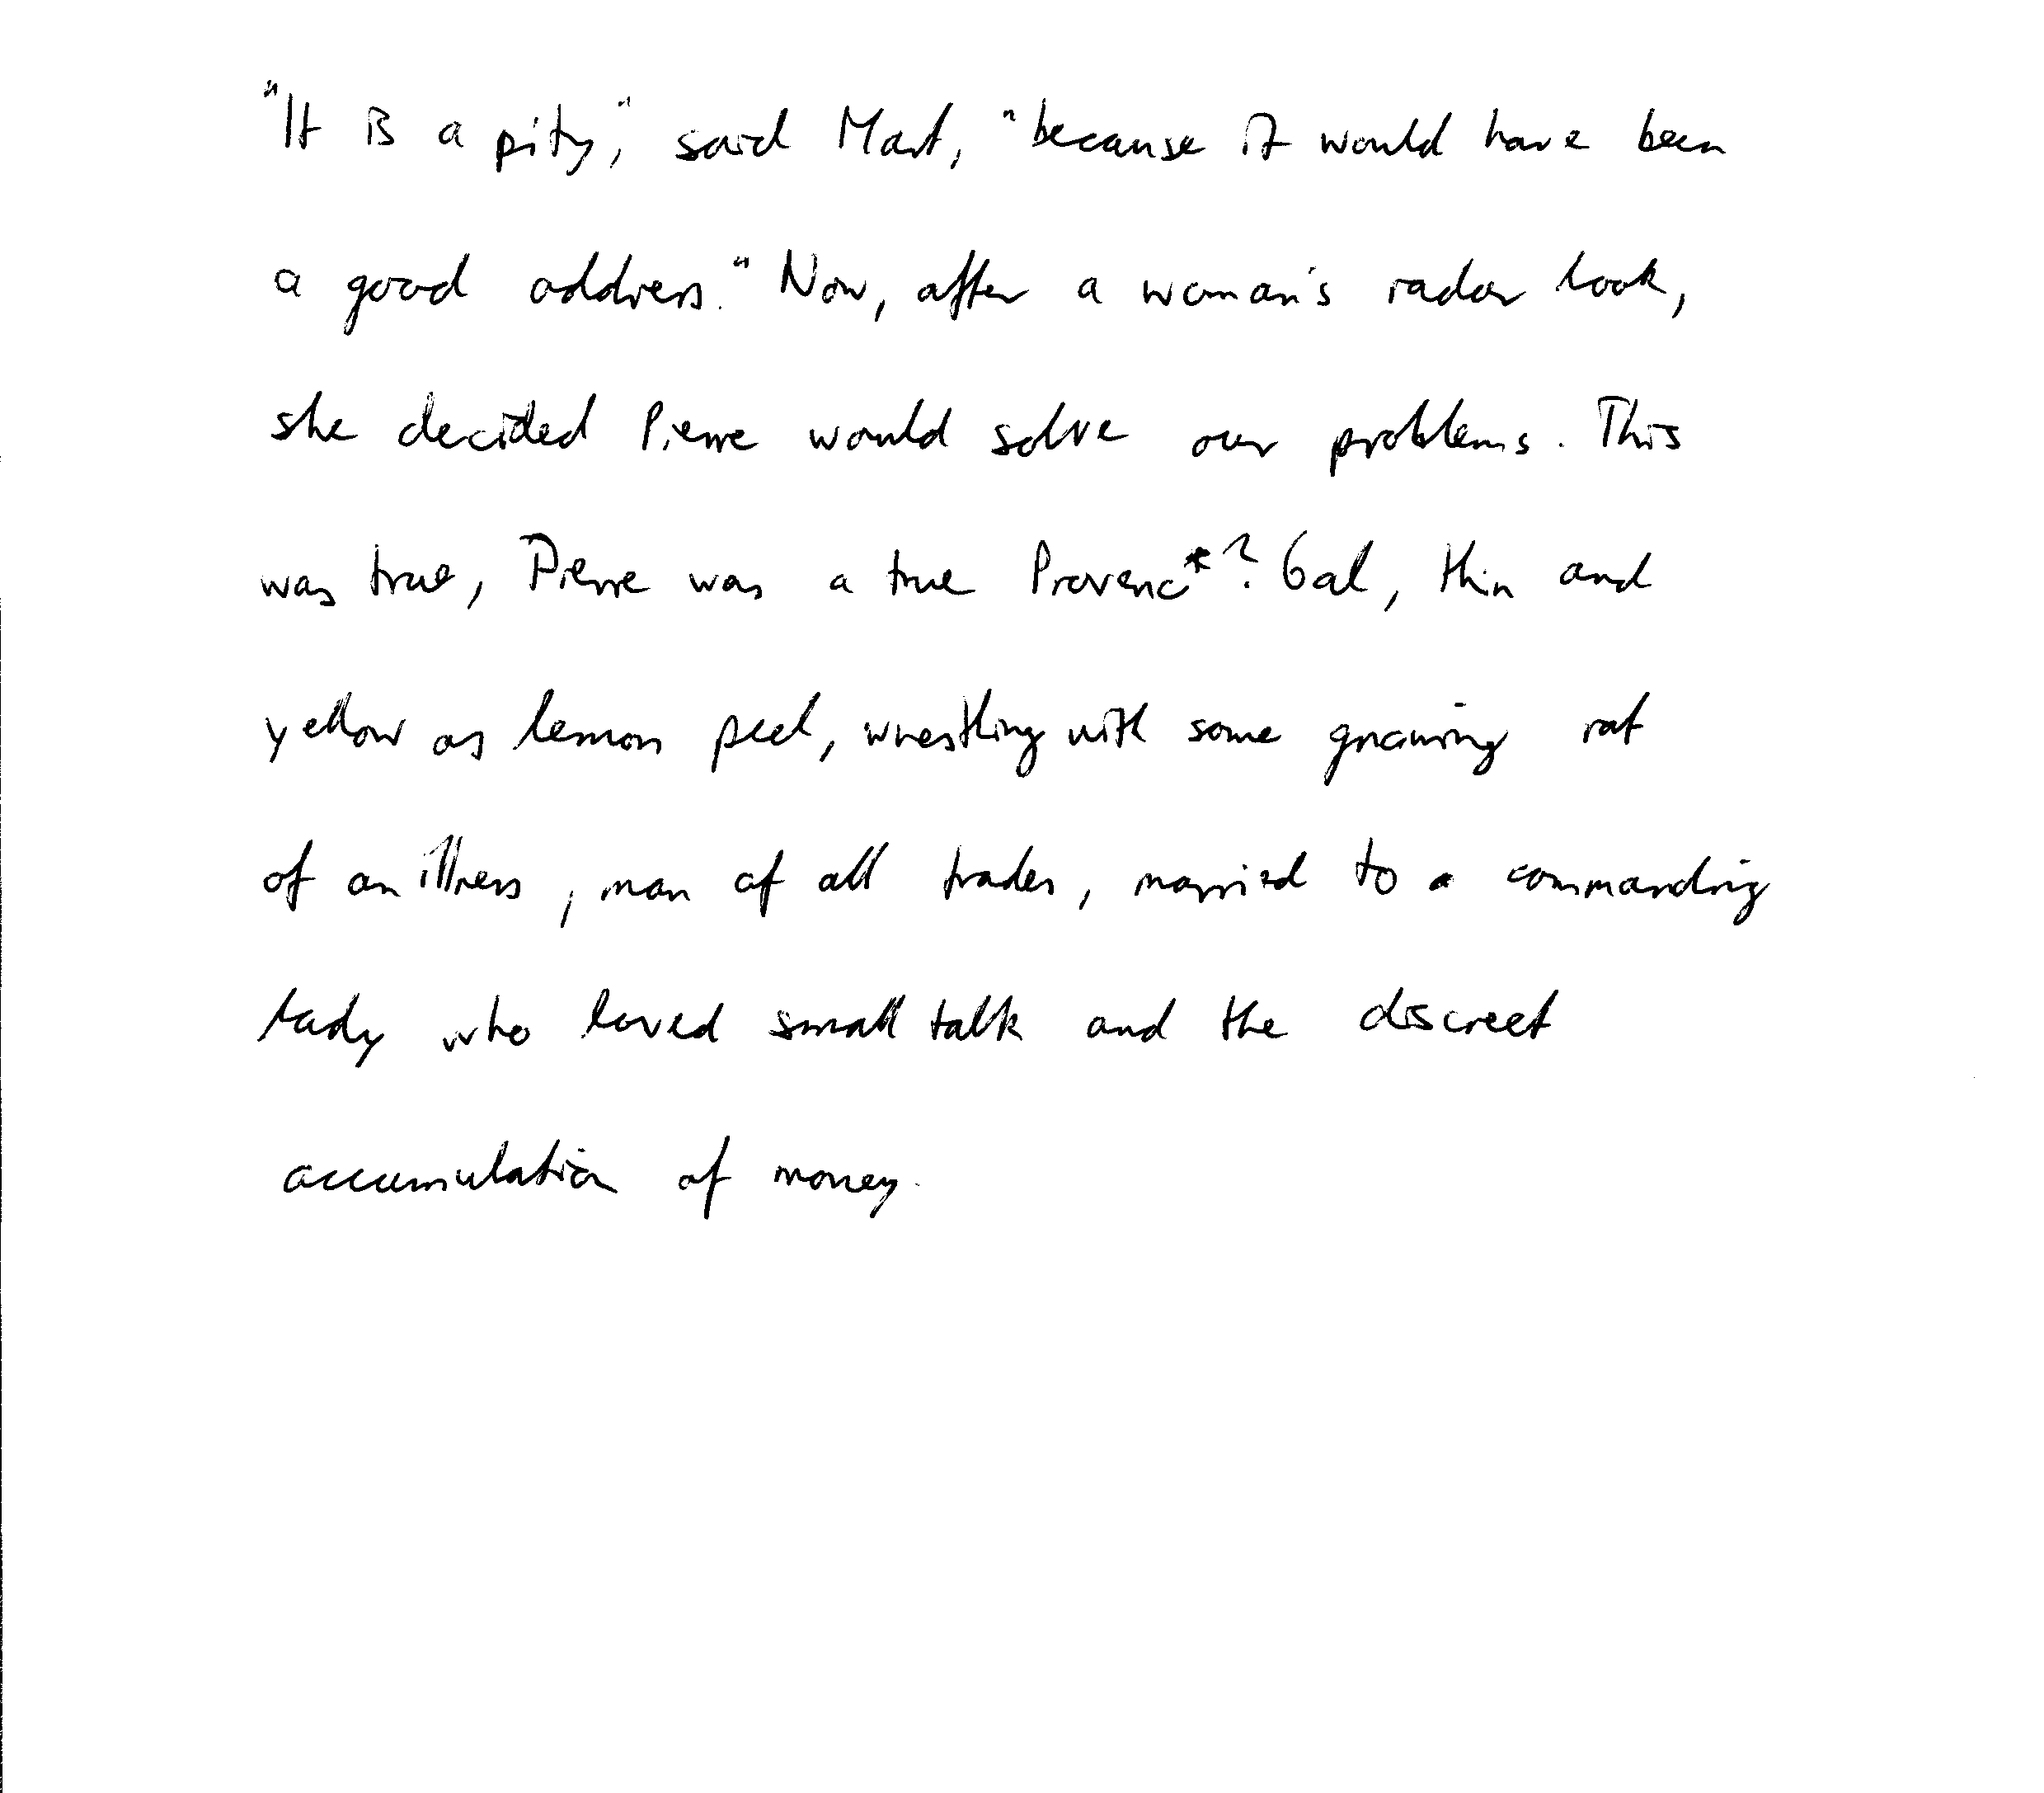 "It is a pity," said Mart, "because it would have been
a good address." Now, after a woman's radar look,
she decided Pierre would solve our problems. This
was true, Pierre was a true Provenc*?6al, thin and
yellow as lemon peel, wrestling with some gnawing rat
of an illness, man of all trades, married to a commanding
lady who loved small talk and the discreet
accumulation of money.